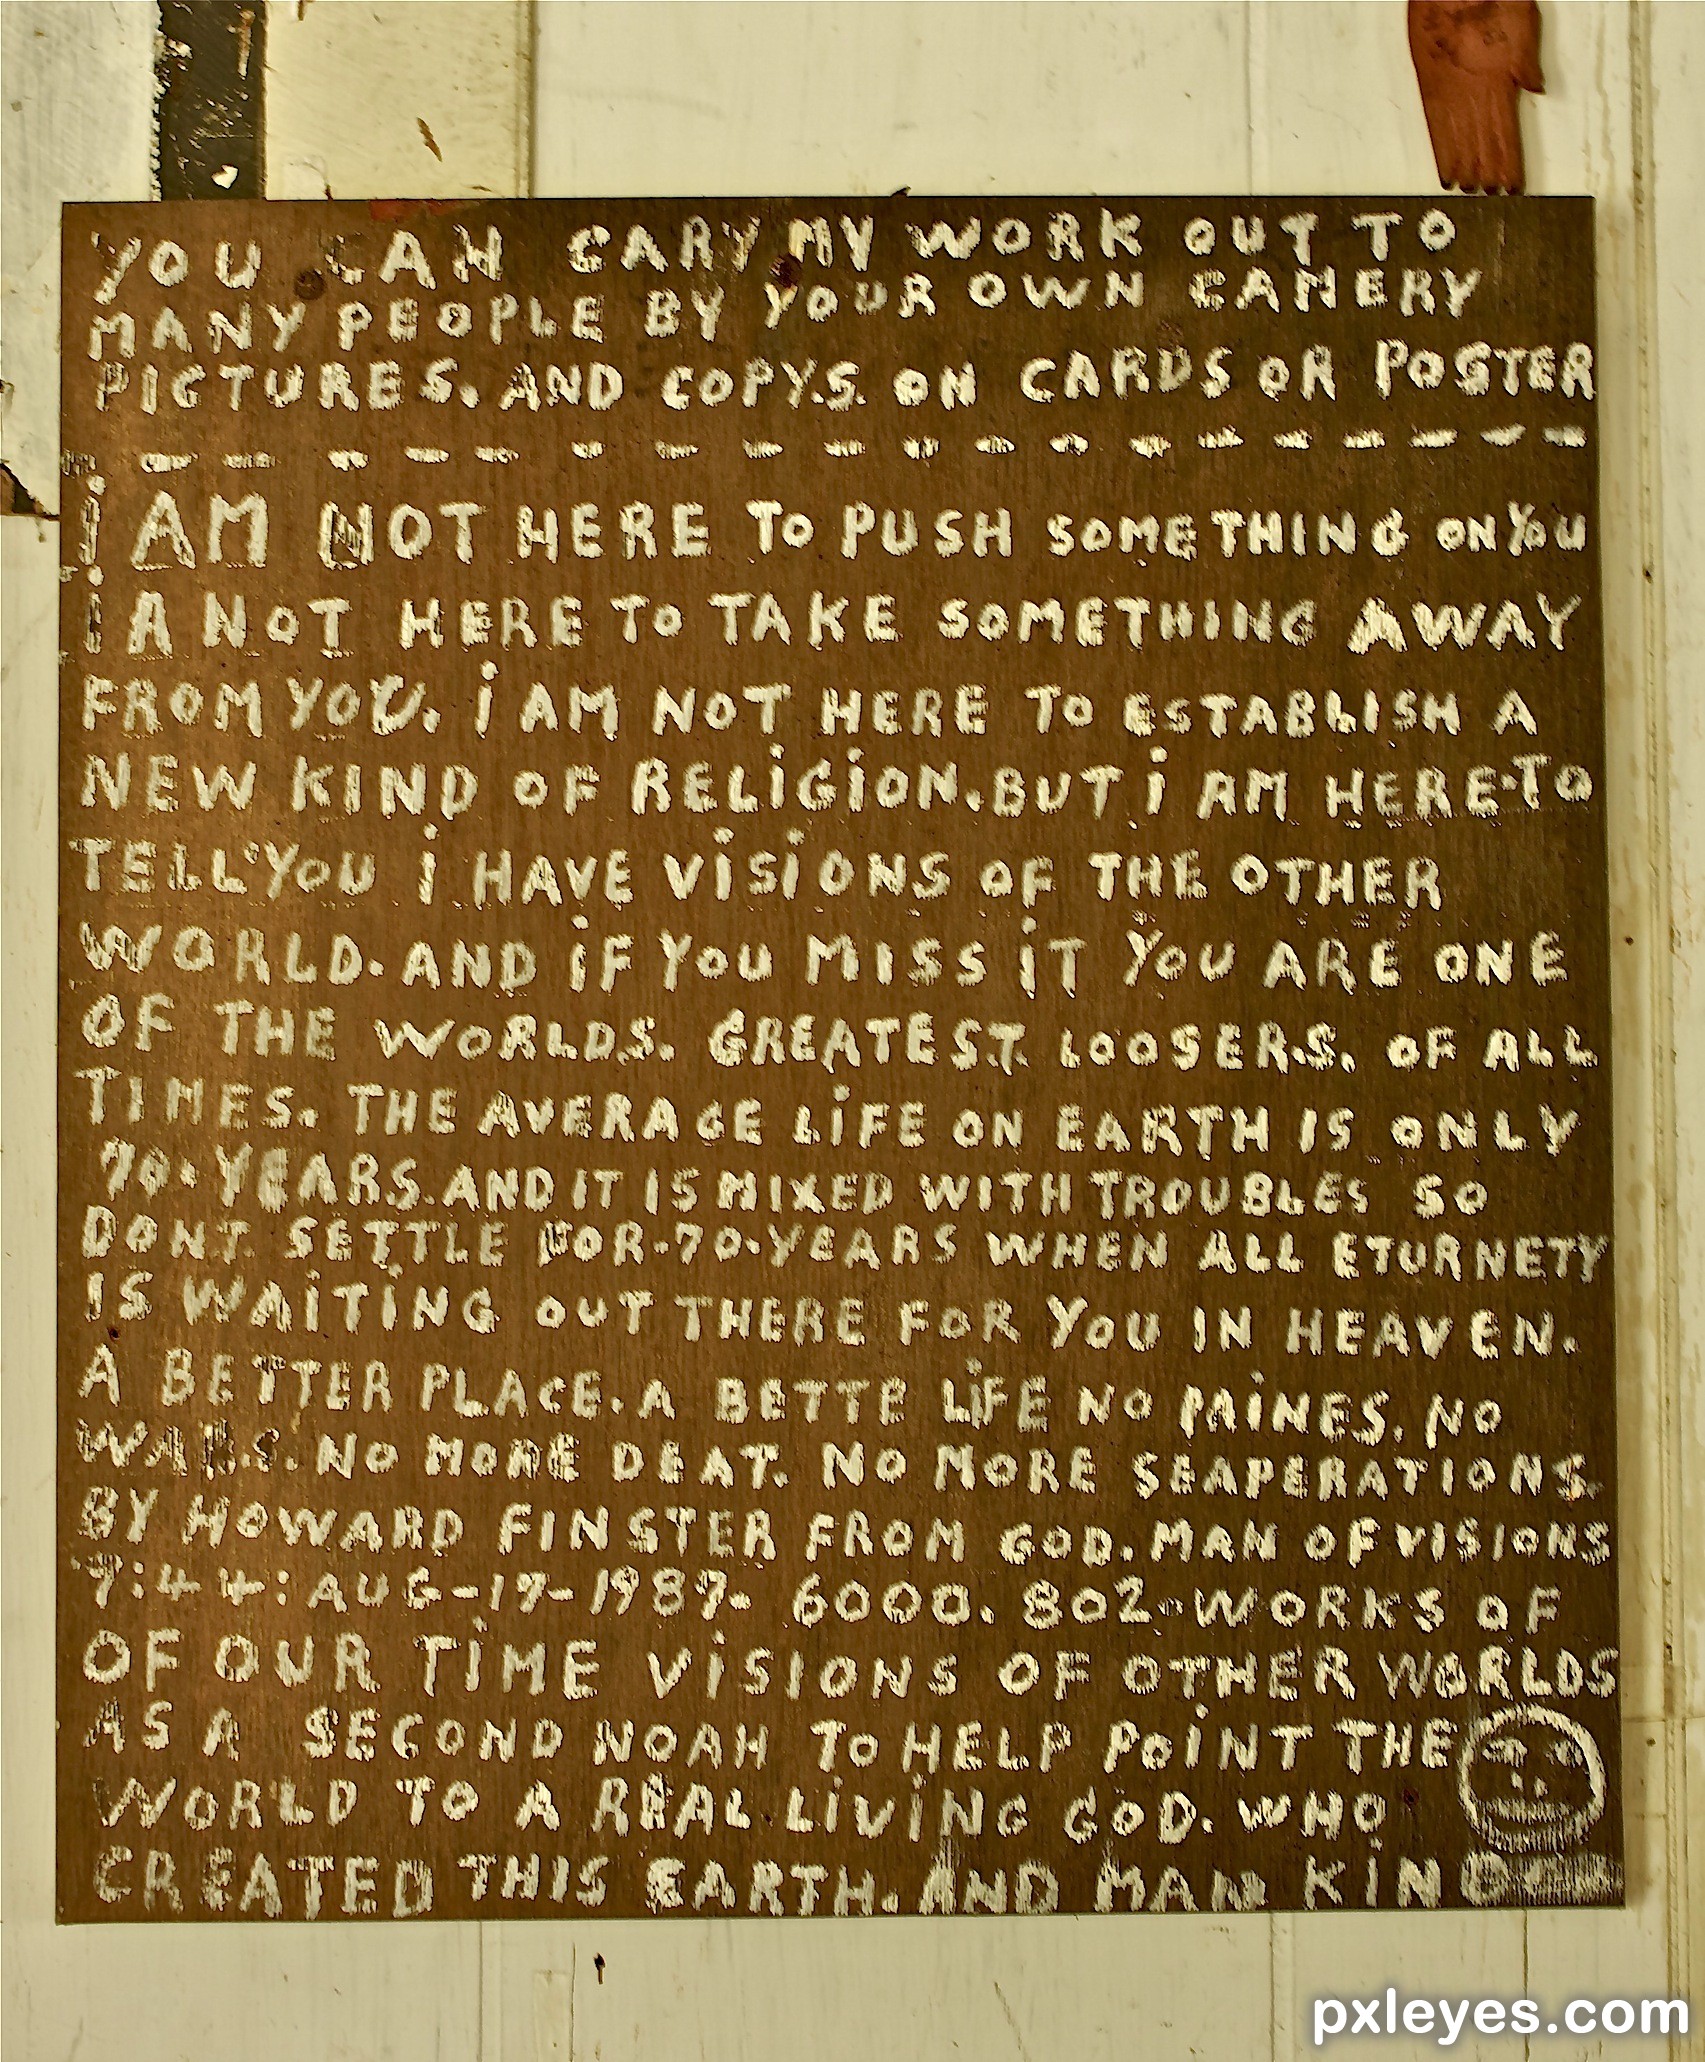 YOU CAN CARY MY WORK OUT TO
MANY PEOPLE BY YOUR OWN CAMERY
PICTURES. AND COPY.S. ON CARDS OR POSTER
I AM NOT HERE TO PUSH SOMETHING ON YOU
I A NOT HERE TO TAKE SOMETHING AWAY
FROM YOU. I AM NOT HERE TO ESTABLISH A
NEW KIND OF RELIGION. BUT I AM HERE. TO
TELL YOU I HAVE VISIONS OF THE OTHER
WORLD. AND IF YOU MISS IT YOU ARE ONE
OF THE WORLD.S. GREATEST. LOOSER.S. OF ALL
TIMES. THE AVERAGE LIFE ON EARTH IS ONLY
70. YEARS. AND IT IS MIXED WITH TROUBLES SO
DON.T. SETTLE FOR. 70. YEARS WHEN ALL ETURNETY
IS WAITING OUT THERE FOR YOU IN HEAVEN.
A BETTER PLACE. A BETTE LIFE NO PAINES. NO
WAR.S. NO MORE DEAT. NO MORE SEAPERATIONS.
BY HOWARD FINSTER FROM GOD. MAN OF VISIONS
7:44: AUG-17-1987- 6000. 802. WORKS OF
OF OUR TIME VISIONS OF OTHER WORLDS
AS A SECOND NOAH TO HELP POINT THE
WORLD TO A REAL LIVING GOD. WHO
CREATED THIS EARTH. AND MAN KIN
pxleyes.com